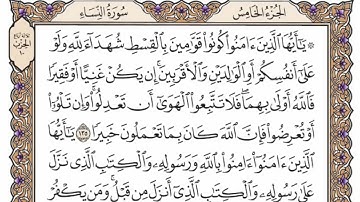 الجُزْءُ الخَامِسُ سُورَةُ النِّسَاءِ
۞ يَٰٓأَيُّهَا ٱلَّذِينَ ءَامَنُوا۟ كُونُوا۟ قَوَّٰمِينَ بِٱلْقِسْطِ شُهَدَآءَ لِلَّهِ وَلَوْ
عَلَىٰٓ أَنفُسِكُمْ أَوِ ٱلْوَٰلِدَيْنِ وَٱلْأَقْرَبِينَ ۚ إِن يَكُنْ غَنِيًّا أَوْ فَقِيرًا
فَٱللَّهُ أَوْلَىٰ بِهِمَا ۖ فَلَا تَتَّبِعُوا۟ ٱلْهَوَىٰٓ أَن تَعْدِلُوا۟ ۚ وَإِن تَلْوُۥٓا۟
أَوْ تُعْرِضُوا۟ فَإِنَّ ٱللَّهَ كَانَ بِمَا تَعْمَلُونَ خَبِيرًا ١٣٥ يَٰٓأَيُّهَا
ٱلَّذِينَ ءَامَنُوٓا۟ ءَامِنُوا۟ بِٱللَّهِ وَرَسُولِهِۦ وَٱلْكِتَٰبِ ٱلَّذِى نَزَّلَ
عَلَىٰ رَسُولِهِۦ وَٱلْكِتَٰبِ ٱلَّذِىٓ أَنزَلَ مِن قَبْلُ ۚ وَمَن يَكْفُرْ
الحزب